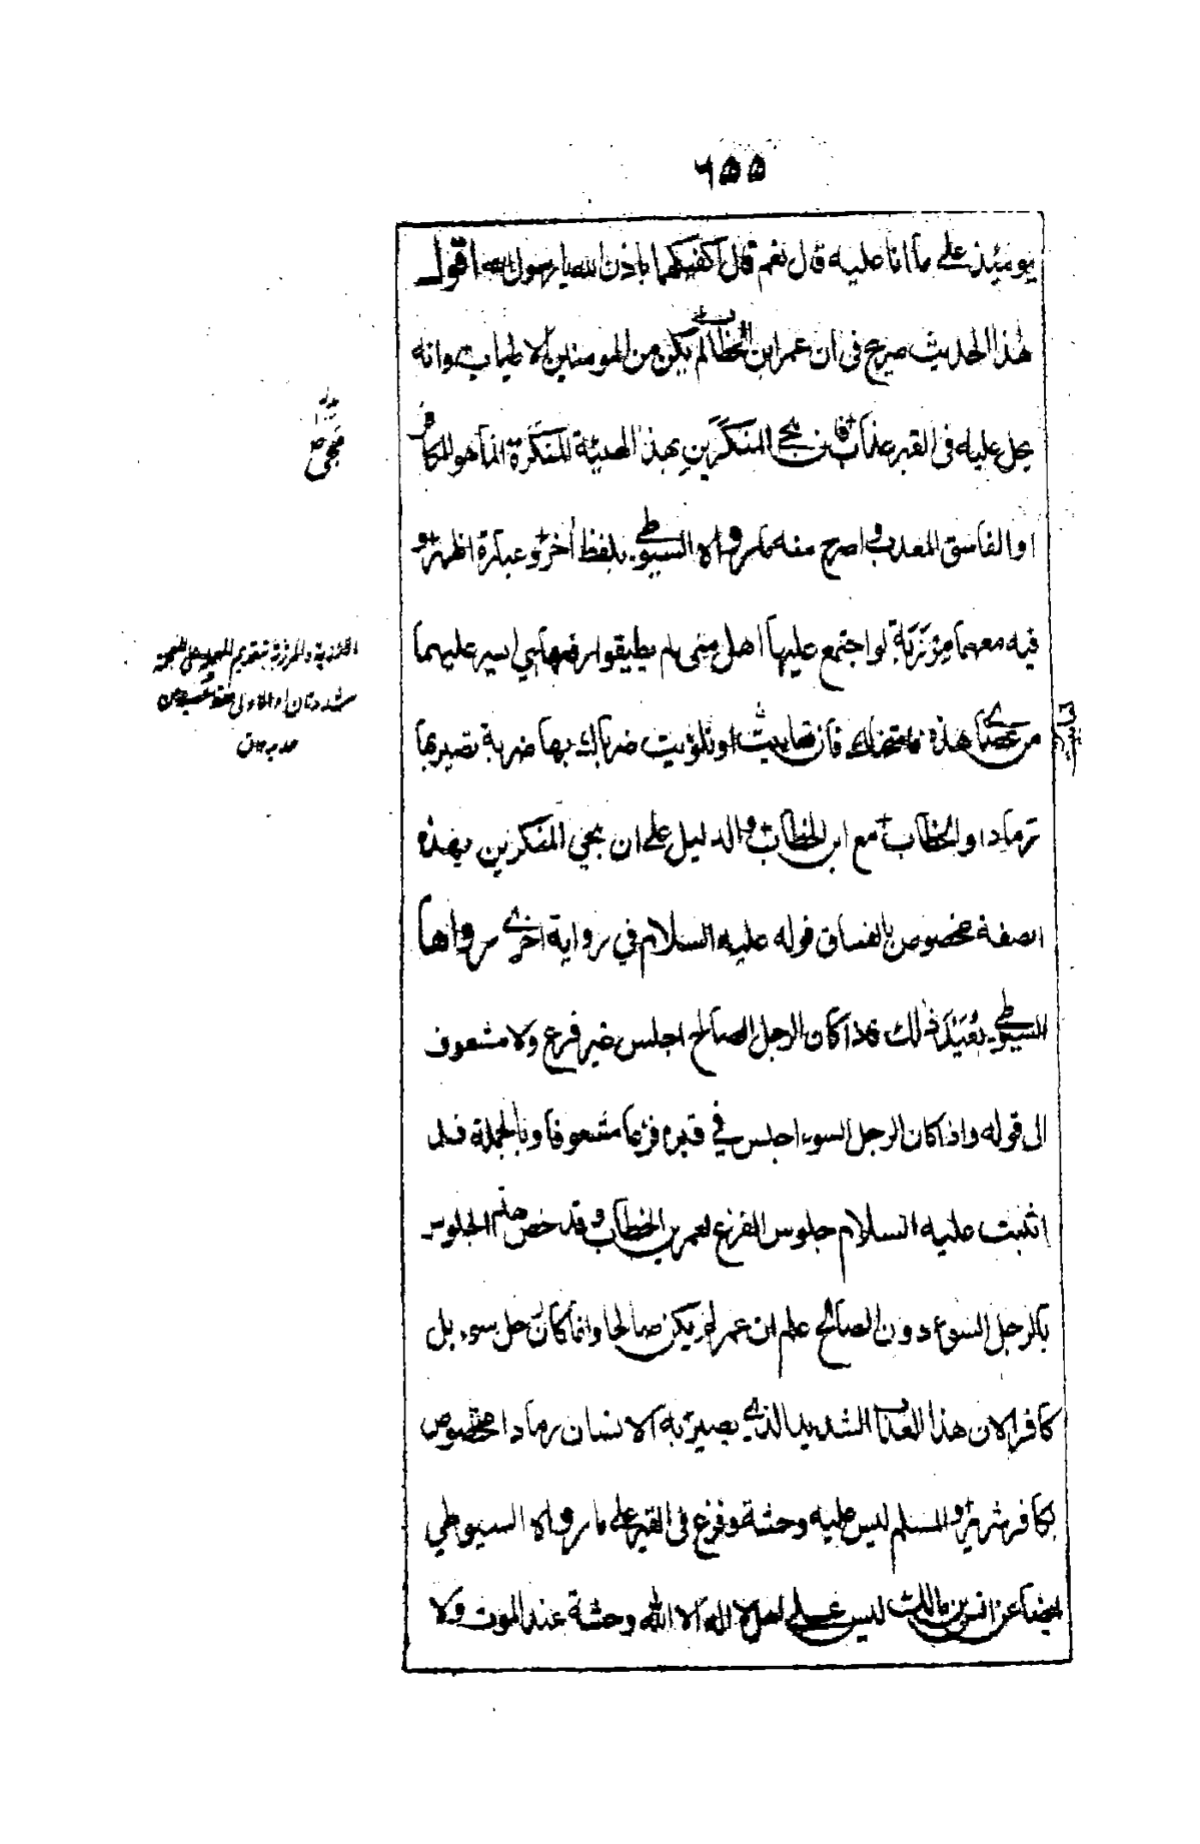 ٦٥٥
يومئذ على ما انا عليه قال نعم قال اكفيكهما باذن الله يا رسول الله اقول
هذا الحديث صريح في ان عمر ابن الخطاب لم يكن من المومنين الاطياب وانه
يحل عليه في القبر عذاب فان مجئ المنكرين بهذه الهيئة المنكرة انما هو للكافر
او الفاسق المعذب واصرح منه ما رواه السيوطي بلفظ أخر وعبارة اظهر و
فيه معهما مِرْزَبَة لو اجتمع عليها اهل منى لم يطيقوا رفعها هي ايسر عليهما
من عصاي هذه فامتحناك فان تعاييت او تلويت ضرباك بها ضربة تصير بها
رمادا والخطاب مع ابن الخطاب والدليل على ان مجي المنكرين بهذه
الصفة مخصوص بالفساق قوله عليه السلام في رواية اخرى رواها
السيوطي بُعَيْدَ ذلك فاذا كان الرجل الصالح اجلس غير فزع ولا مشعوف
الى قوله واذا كان الرجل السوء اجلس في قبره فزعا مشعوفا وبالجملة فلما
اثبت عليه السلام جلوس الفزع لعمر بن الخطاب وقد خص هذا الجلوس
بالرجل السوء دون الصالح علم ان عمر لم يكن صالحا وانما كان رجل سوء بل
كافر الان هذا العذاب الشديد الذي يصير به الانسان رمادا مخصوص
بكافر شرير والمسلم ليس عليه وحشة وفزع في القبر على ما رواه السيوطي
ايضا عن انس بن مالك ليس على اهل لا اله الا الله وحشة عند الموت ولا
مجئ